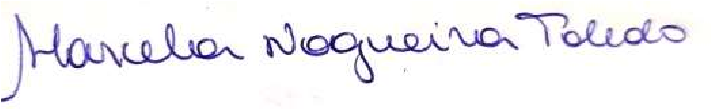 Marcella Nogueira Toledo